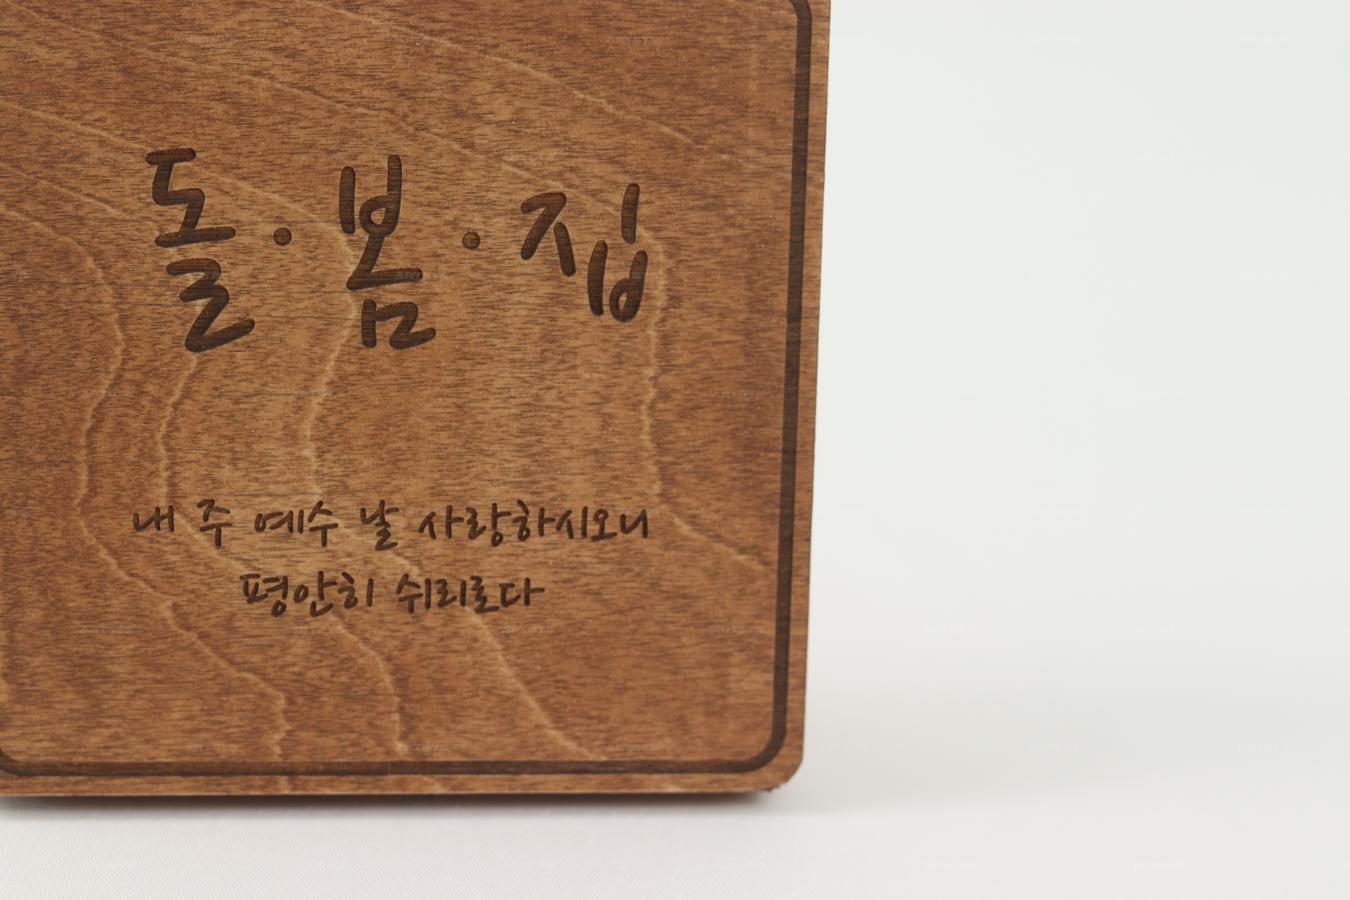 돌·봄·집
내 주 예수 날 사랑하시오니
평안히 쉬리로다